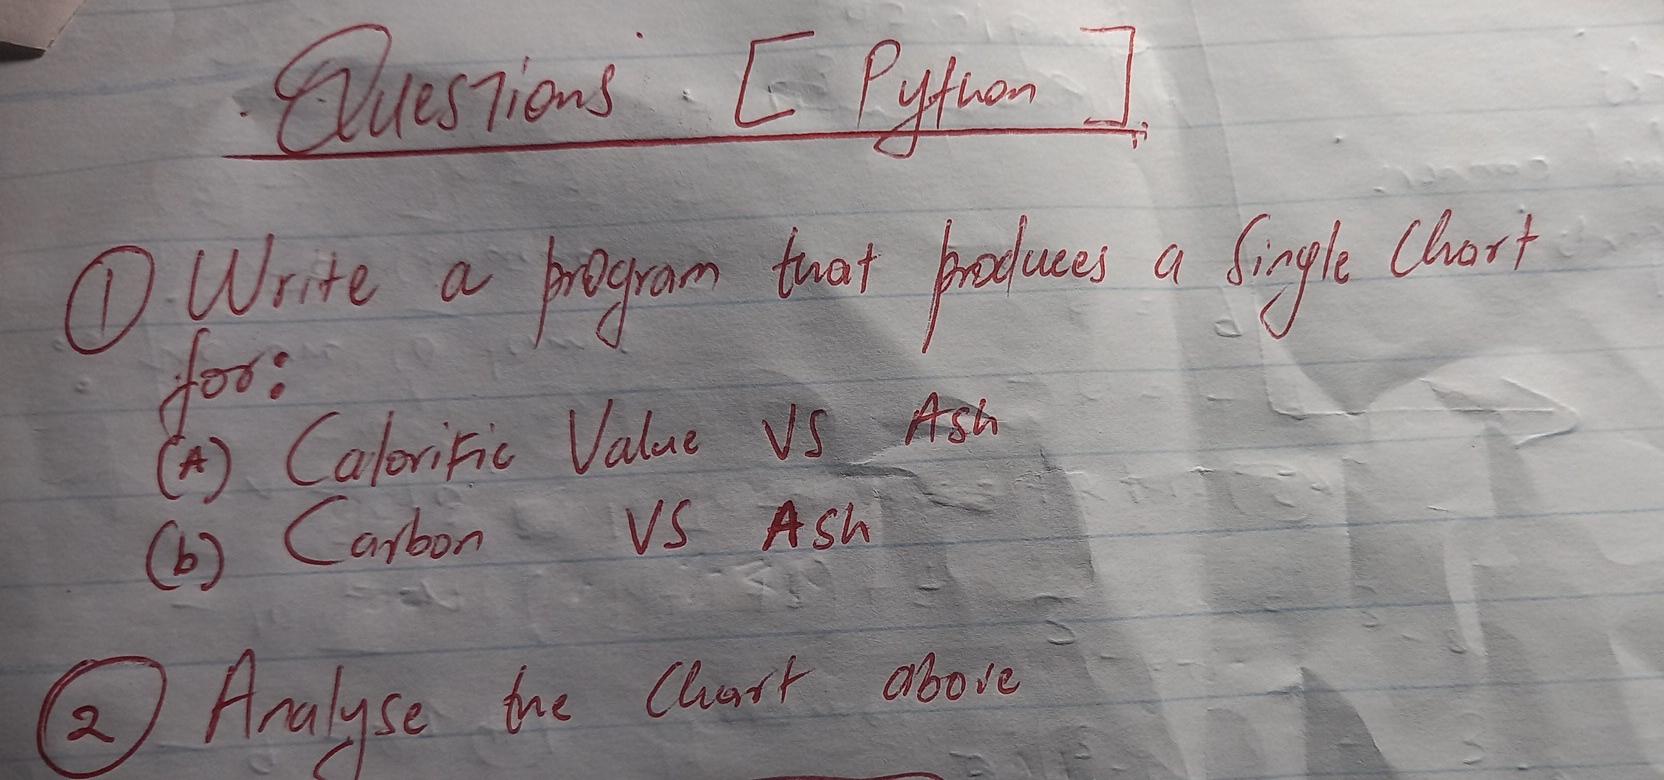 Questions [Python]
① Write a program that produces a single Chart
for:
(A) Calorific Value VS Ash
(b) Carbon VS Ash
② Analyse the Chart above